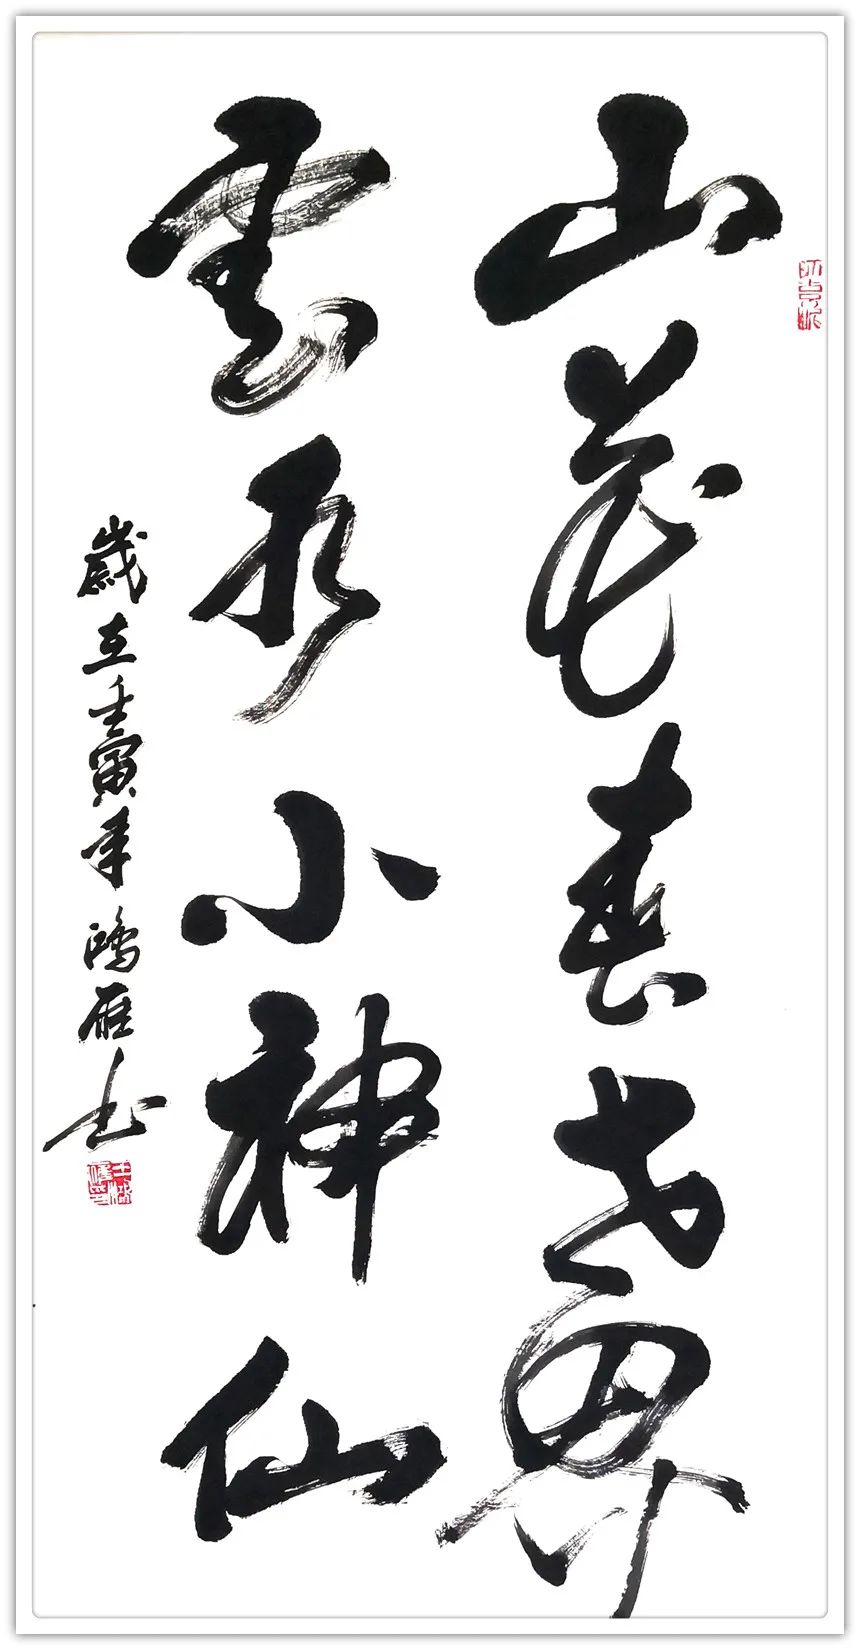 山花春世界
雲水小神仙
歲在壬寅年鴻雁书